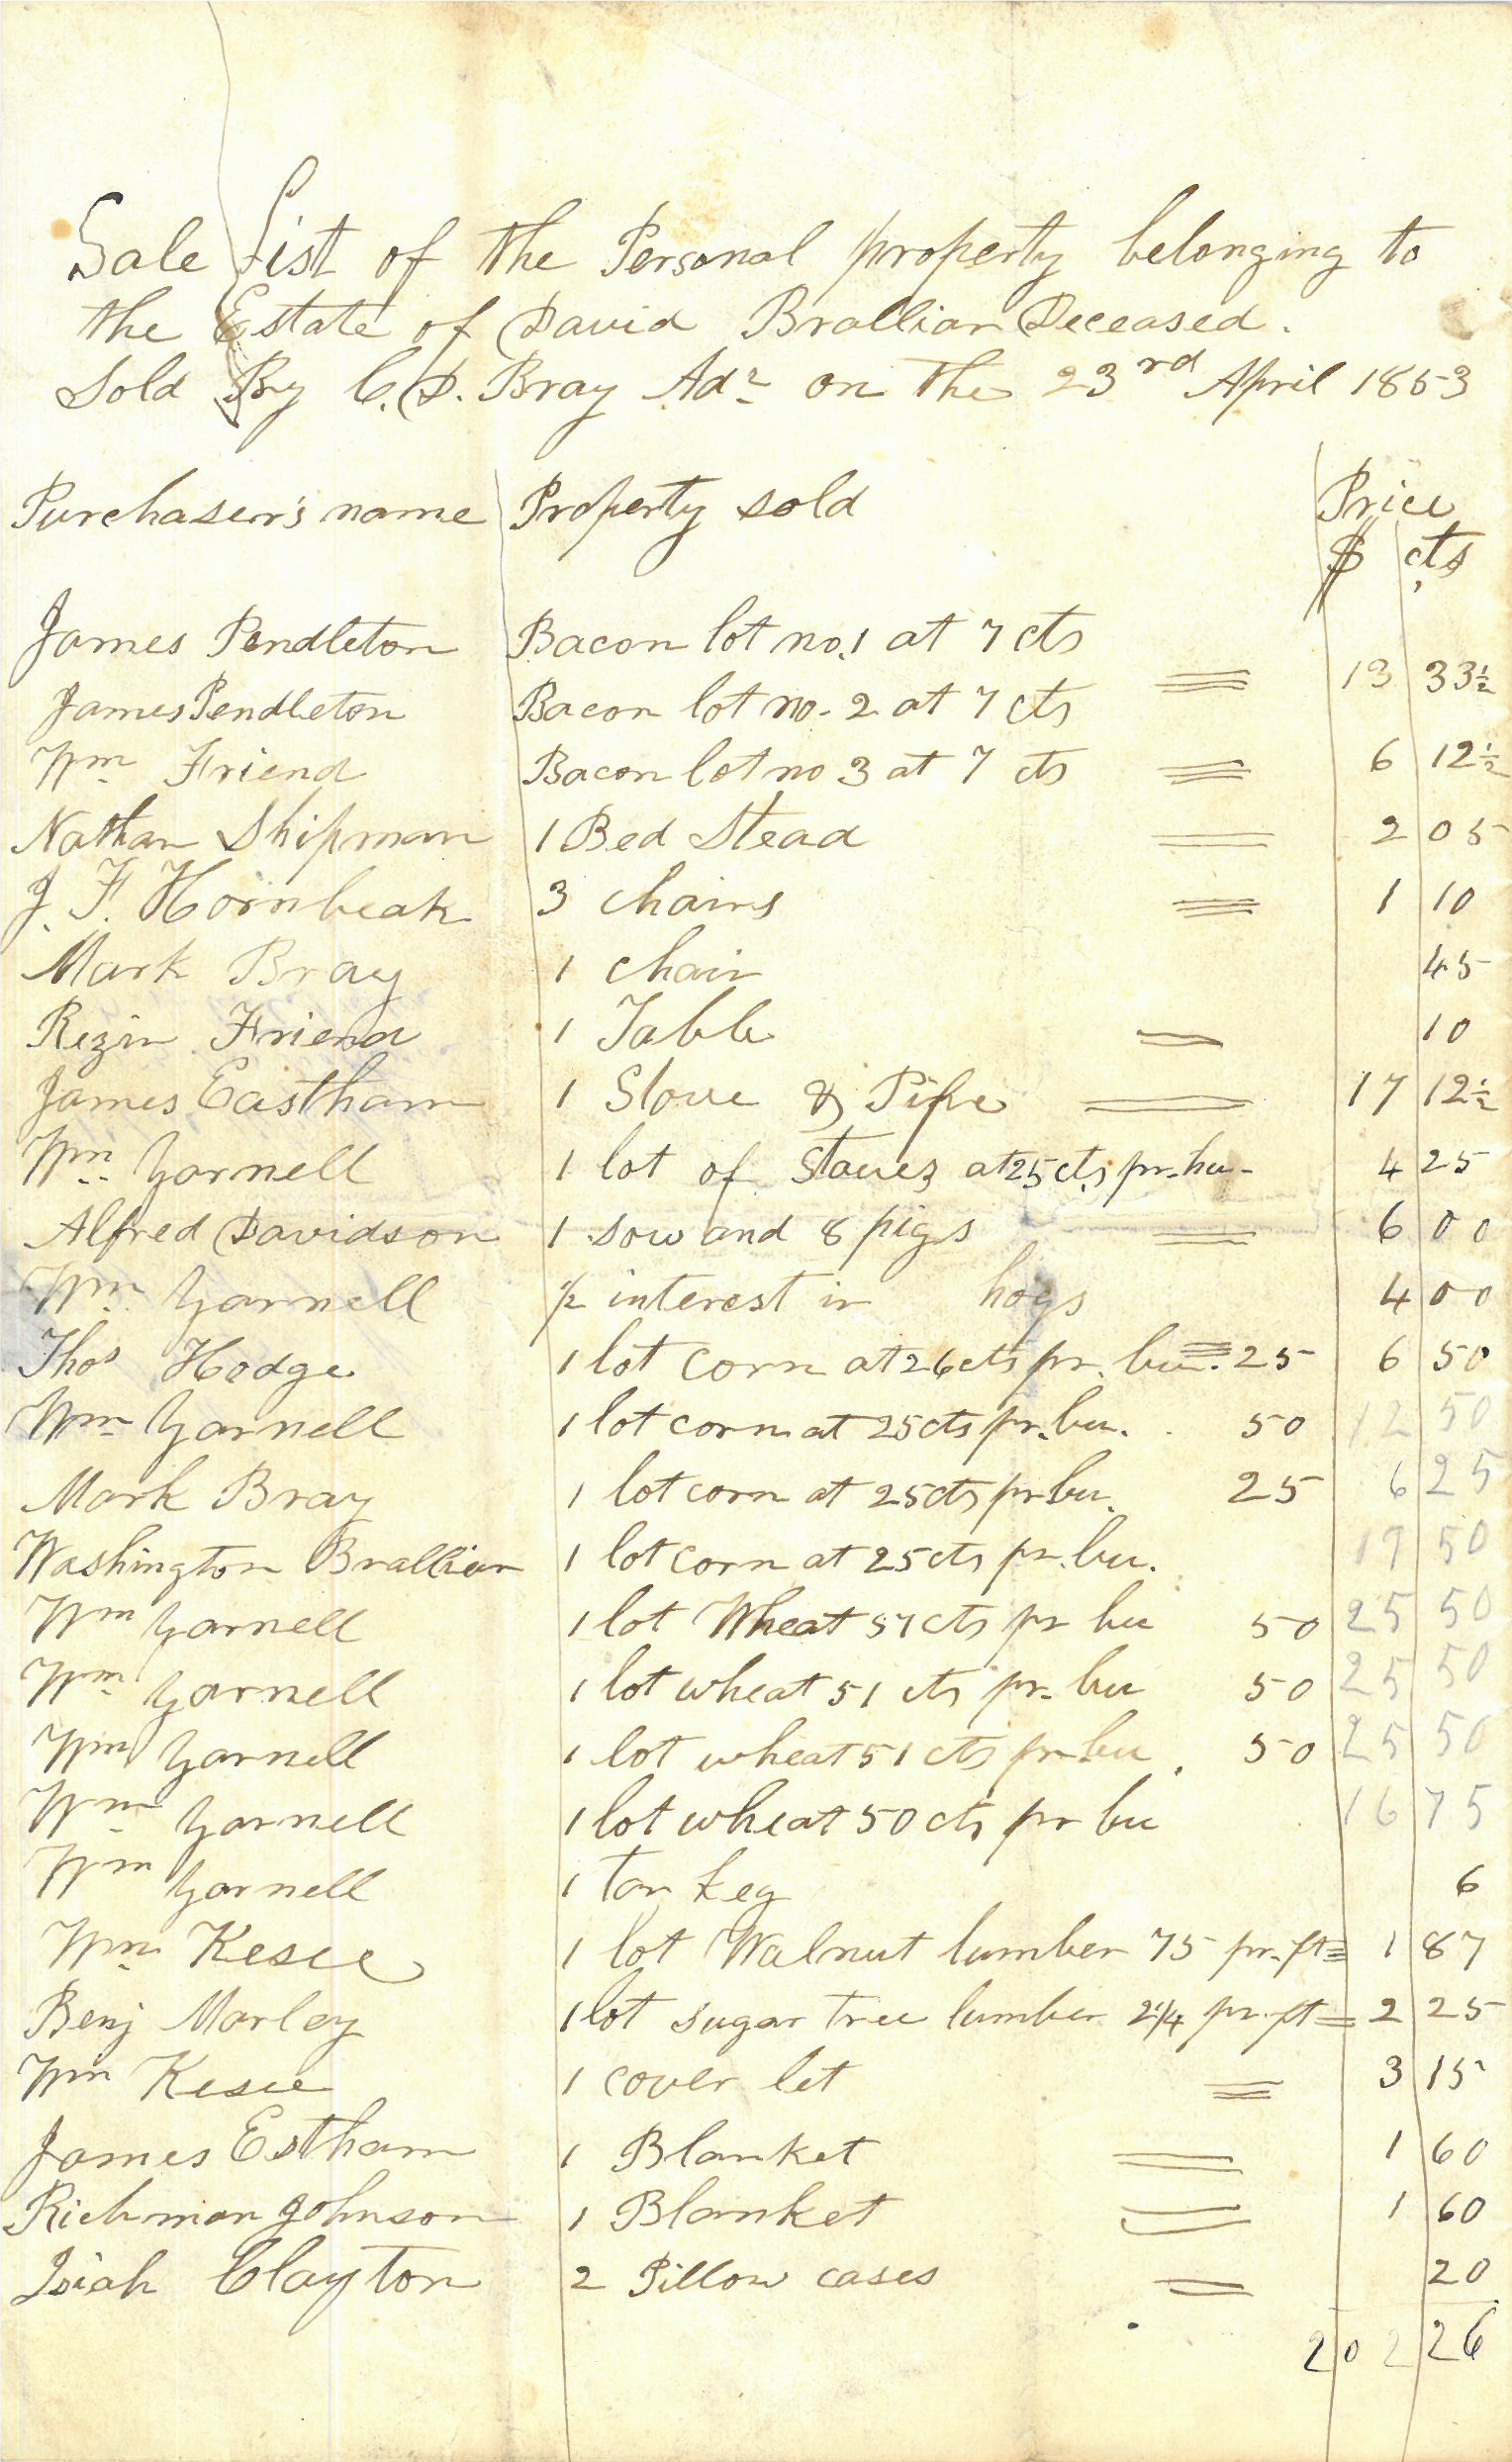 Sale List of the Personal property belonging to
the Estate of David Brallier Deceased.
Sold By C. D. Bray Adr on the 23rd April 1853
Purchaser's name Property sold Price
$ cts
James Pendleton Bacon lot no. 1 at 7 cts
13 33½
James Pendleton Bacon lot no. 2 at 7 cts
Wm Friend Bacon lot no 3 at 7 cts = 6 12½
Nathan Shipman 1 Bed Stead = 2 05
J. F. Hornbeak 3 chairs = 1 10
Mark Bray 1 chair 45
Rezin Friend 1 Table = 10
James Eastham 1 Stove & Pipe = 17 12½
Wm Yarnell 1 lot of Staves at 25 cts pr. hu- 4 25
Alfred Davidson 1 sow and 8 pigs = 6 00
Wm Yarnell ½ interest in hogs 4 00
Thos Hodge 1 lot corn at 26 cts pr. bu. = 25 6 50
Wm Yarnell 1 lot corn at 25 cts pr. bu. 50 12 50
Mark Bray 1 lot corn at 25 cts pr bu. 25 6 25
Washington Brallier 1 lot corn at 25 cts pr. bu. 19 50
Wm Yarnell 1 lot Wheat 51 cts pr bu 50 25 50
Wm Yarnell 1 lot wheat 51 cts pr. bu 50 25 50
Wm Yarnell 1 lot wheat 51 cts pr. bu. 50 25 50
Wm Yarnell 1 lot wheat 50 cts pr bu 16 75
Wm Yarnell 1 tar keg 6
Wm Kesee 1 lot Walnut lumber 75 pr. ft = 1 87
Benj Marley 1 lot sugar tree lumber 2¼ pr. ft = 2 25
Wm Kesee 1 cover let = 3 15
James Estham 1 Blanket = 1 60
Richman Johnson 1 Blanket = 1 60
Isiah Clayton 2 Pillow cases = 20
202 26